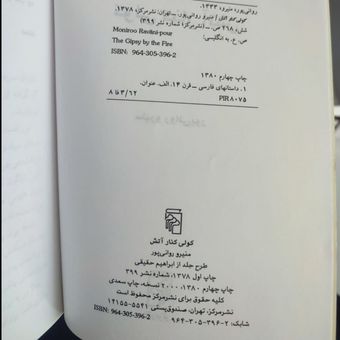 روانی‌پور، منیرو، ۱۳۳۳.
کولی کنار آتش / منیرو روانی‌پور. ــ تهران: نشرمرکز، ۱۳۷۸.
۲۶۸ ص. ــ (نشرمرکز؛ شماره نشر ۳۹۹)
Moniroo Ravani-pour
ص. ع. به انگلیسی:
The Gipsy by the Fire
ISBN: 964-305-396-2
چاپ چهارم ۱۳۸۰
۱. داستانهای فارسی ــ قرن ۱۴. الف. عنوان.
۸فا۳/۶۲ PIR۸۰۷۵
کولی کنار آتش
منیرو روانی‌پور
طرح جلد از ابراهیم حقیقی
چاپ اول ۱۳۷۸، شماره نشر ۳۹۹
چاپ چهارم ۱۳۸۰، ۲۰۰۰ نسخه، چاپ سعدی
کلیه حقوق برای نشرمرکز محفوظ است
نشرمرکز، تهران، صندوق‌پستی ۵۵۴۱-۱۴۱۵۵
ISBN: 964-305-396-2
شابک: ۲-۳۹۶-۳۰۵-۹۶۴